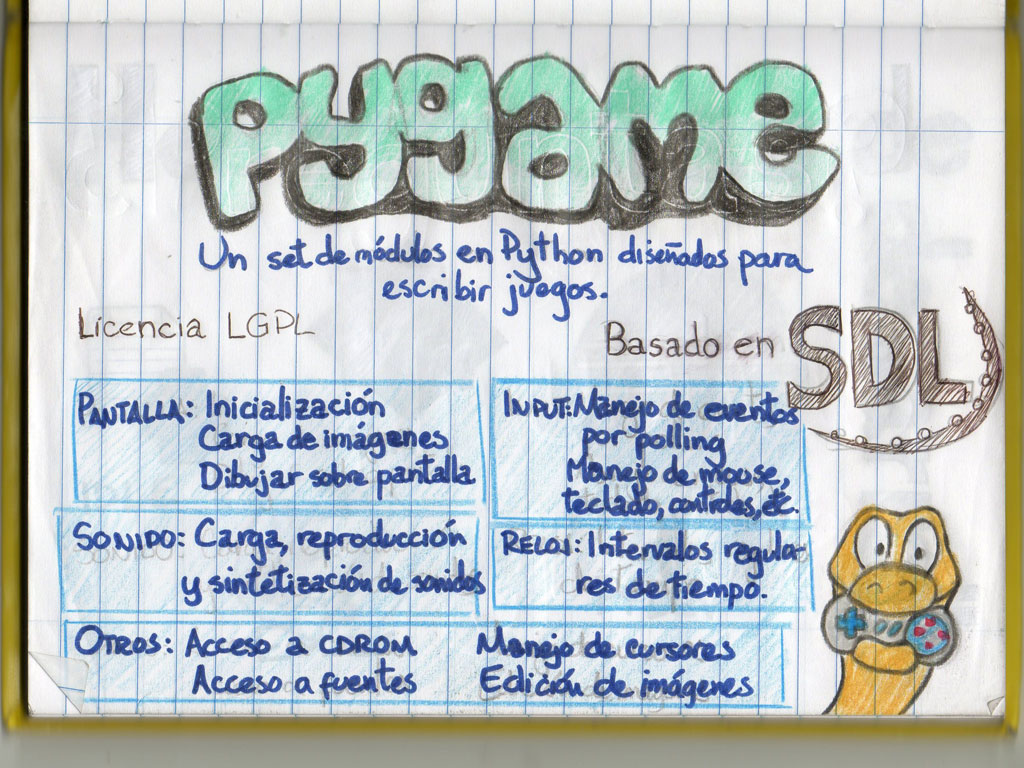 pygame
Un set de módulos en Python diseñados para
escribir juegos.
Licencia LGPL
Basado en SDL
PANTALLA: Inicialización
Carga de imágenes
Dibujar sobre pantalla
INPUT: Manejo de eventos
por polling
Manejo de mouse,
teclado, controles, etc.
SONIDO: Carga, reproducción
y sintetización de sonidos
RELOJ: Intervalos regula-
res de tiempo.
OTROS: Acceso a CDROM
Acceso a fuentes
Manejo de cursores
Edición de imágenes